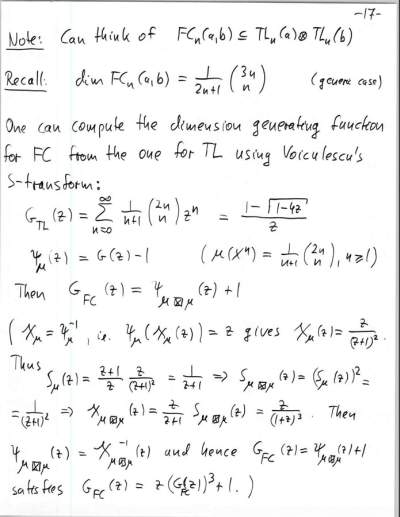 -17-
Note: Can think of FCₙ(a,b) ⊆ TLₙ(a)⊗TLₙ(b)
Recall: dim FCₙ(a,b) = 1/(2n+1) (3n n) (generic case)
One can compute the dimension generating function
for FC from the one for TL using Voiculescu's
S-transform:
G_TL(z) = ∑_{n=0}^∞ 1/(n+1) (2n n) zⁿ = (1-√(1-4z))/z
ψ_μ(z) = G(z)-1 (μ(Xⁿ) = 1/(n+1) (2n n), n≥1)
Then G_FC(z) = ψ_{μ⊠μ}(z)+1
(χ_μ = ψ_μ^{-1}, i.e. ψ_μ(χ_μ(z)) = z gives χ_μ(z) = z/(z+1)².
Thus
S_μ(z) = (z+1)/z z/(z+1)² = 1/(z+1) ⇒ S_{μ⊠μ}(z) = (S_μ(z))² =
= 1/(z+1)² ⇒ χ_{μ⊠μ}(z) = z/(z+1) S_{μ⊠μ}(z) = z/(1+z)³. Then
ψ_{μ⊠μ}(z) = χ_{μ⊠μ}^{-1}(z) and hence G_FC(z) = ψ_{μ⊠μ}(z)+1
satisfies G_FC(z) = z(G_FC(z))³+1.)